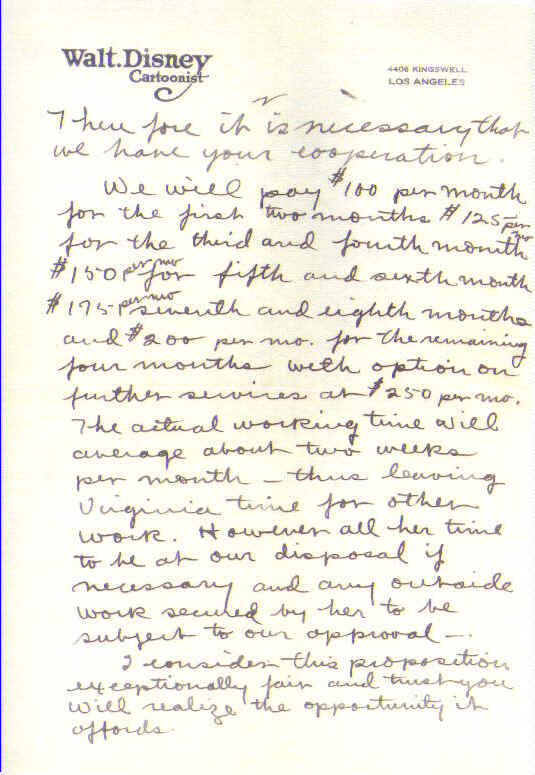 Walt. Disney
Cartoonist
4406 KINGSWELL
LOS ANGELES
Therefore it is necessary that
we have your cooperation.
We will pay $100 per month
for the first two months $125 per mo
for the third and fourth month
$150 per mo for fifth and sixth month
$175 per mo seventh and eighth months
and $200 per mo. for the remaining
four months with option on
further services at $250 per mo.
The actual working time will
average about two weeks
per month – thus leaving
Virginia time for other
work. However all her time
to be at our disposal if
necessary and any outside
work secured by her to be
subject to our approval –.
I consider this proposition
exceptionally fair and trust you
will realize the opportunity it
affords.